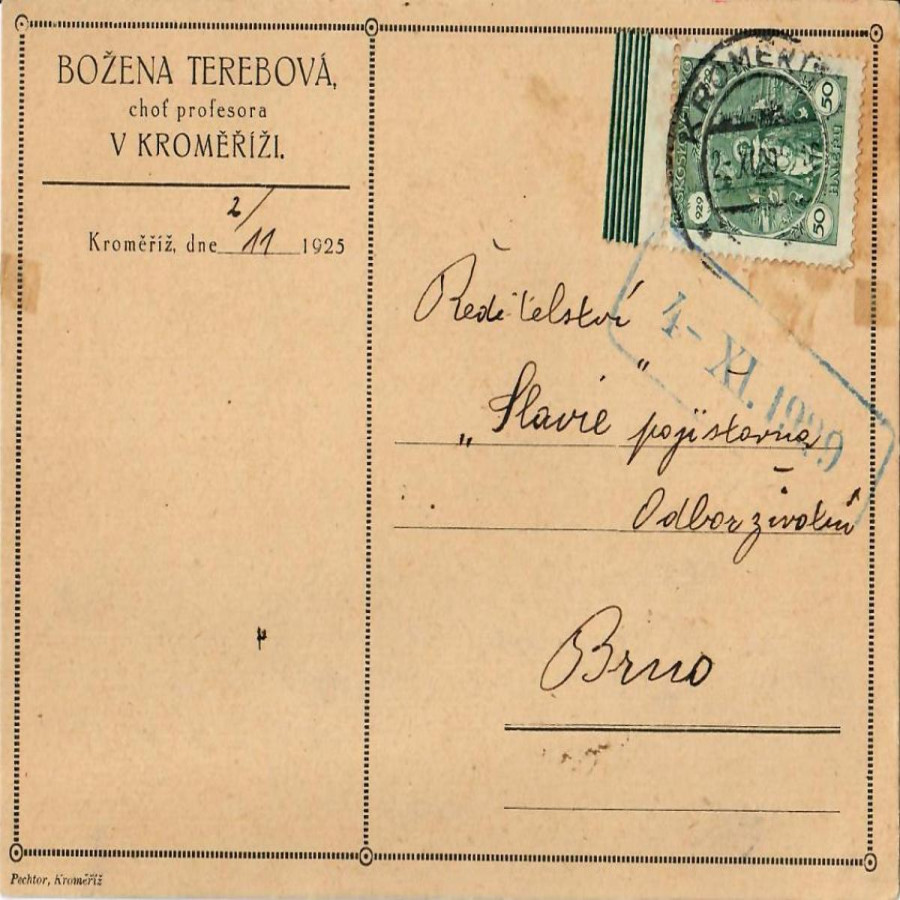 BOŽENA TEREBOVÁ,
choť profesora
V KROMĚŘÍŽI.
Kroměříž, dne 2/11 1925
KROMĚŘÍŽ
50
50
HALÉŘŮ
4-XI.1929
Ředitelství
„Slavie" pojišťovna
Odbor životní
Brno
Pechtor, Kroměříž